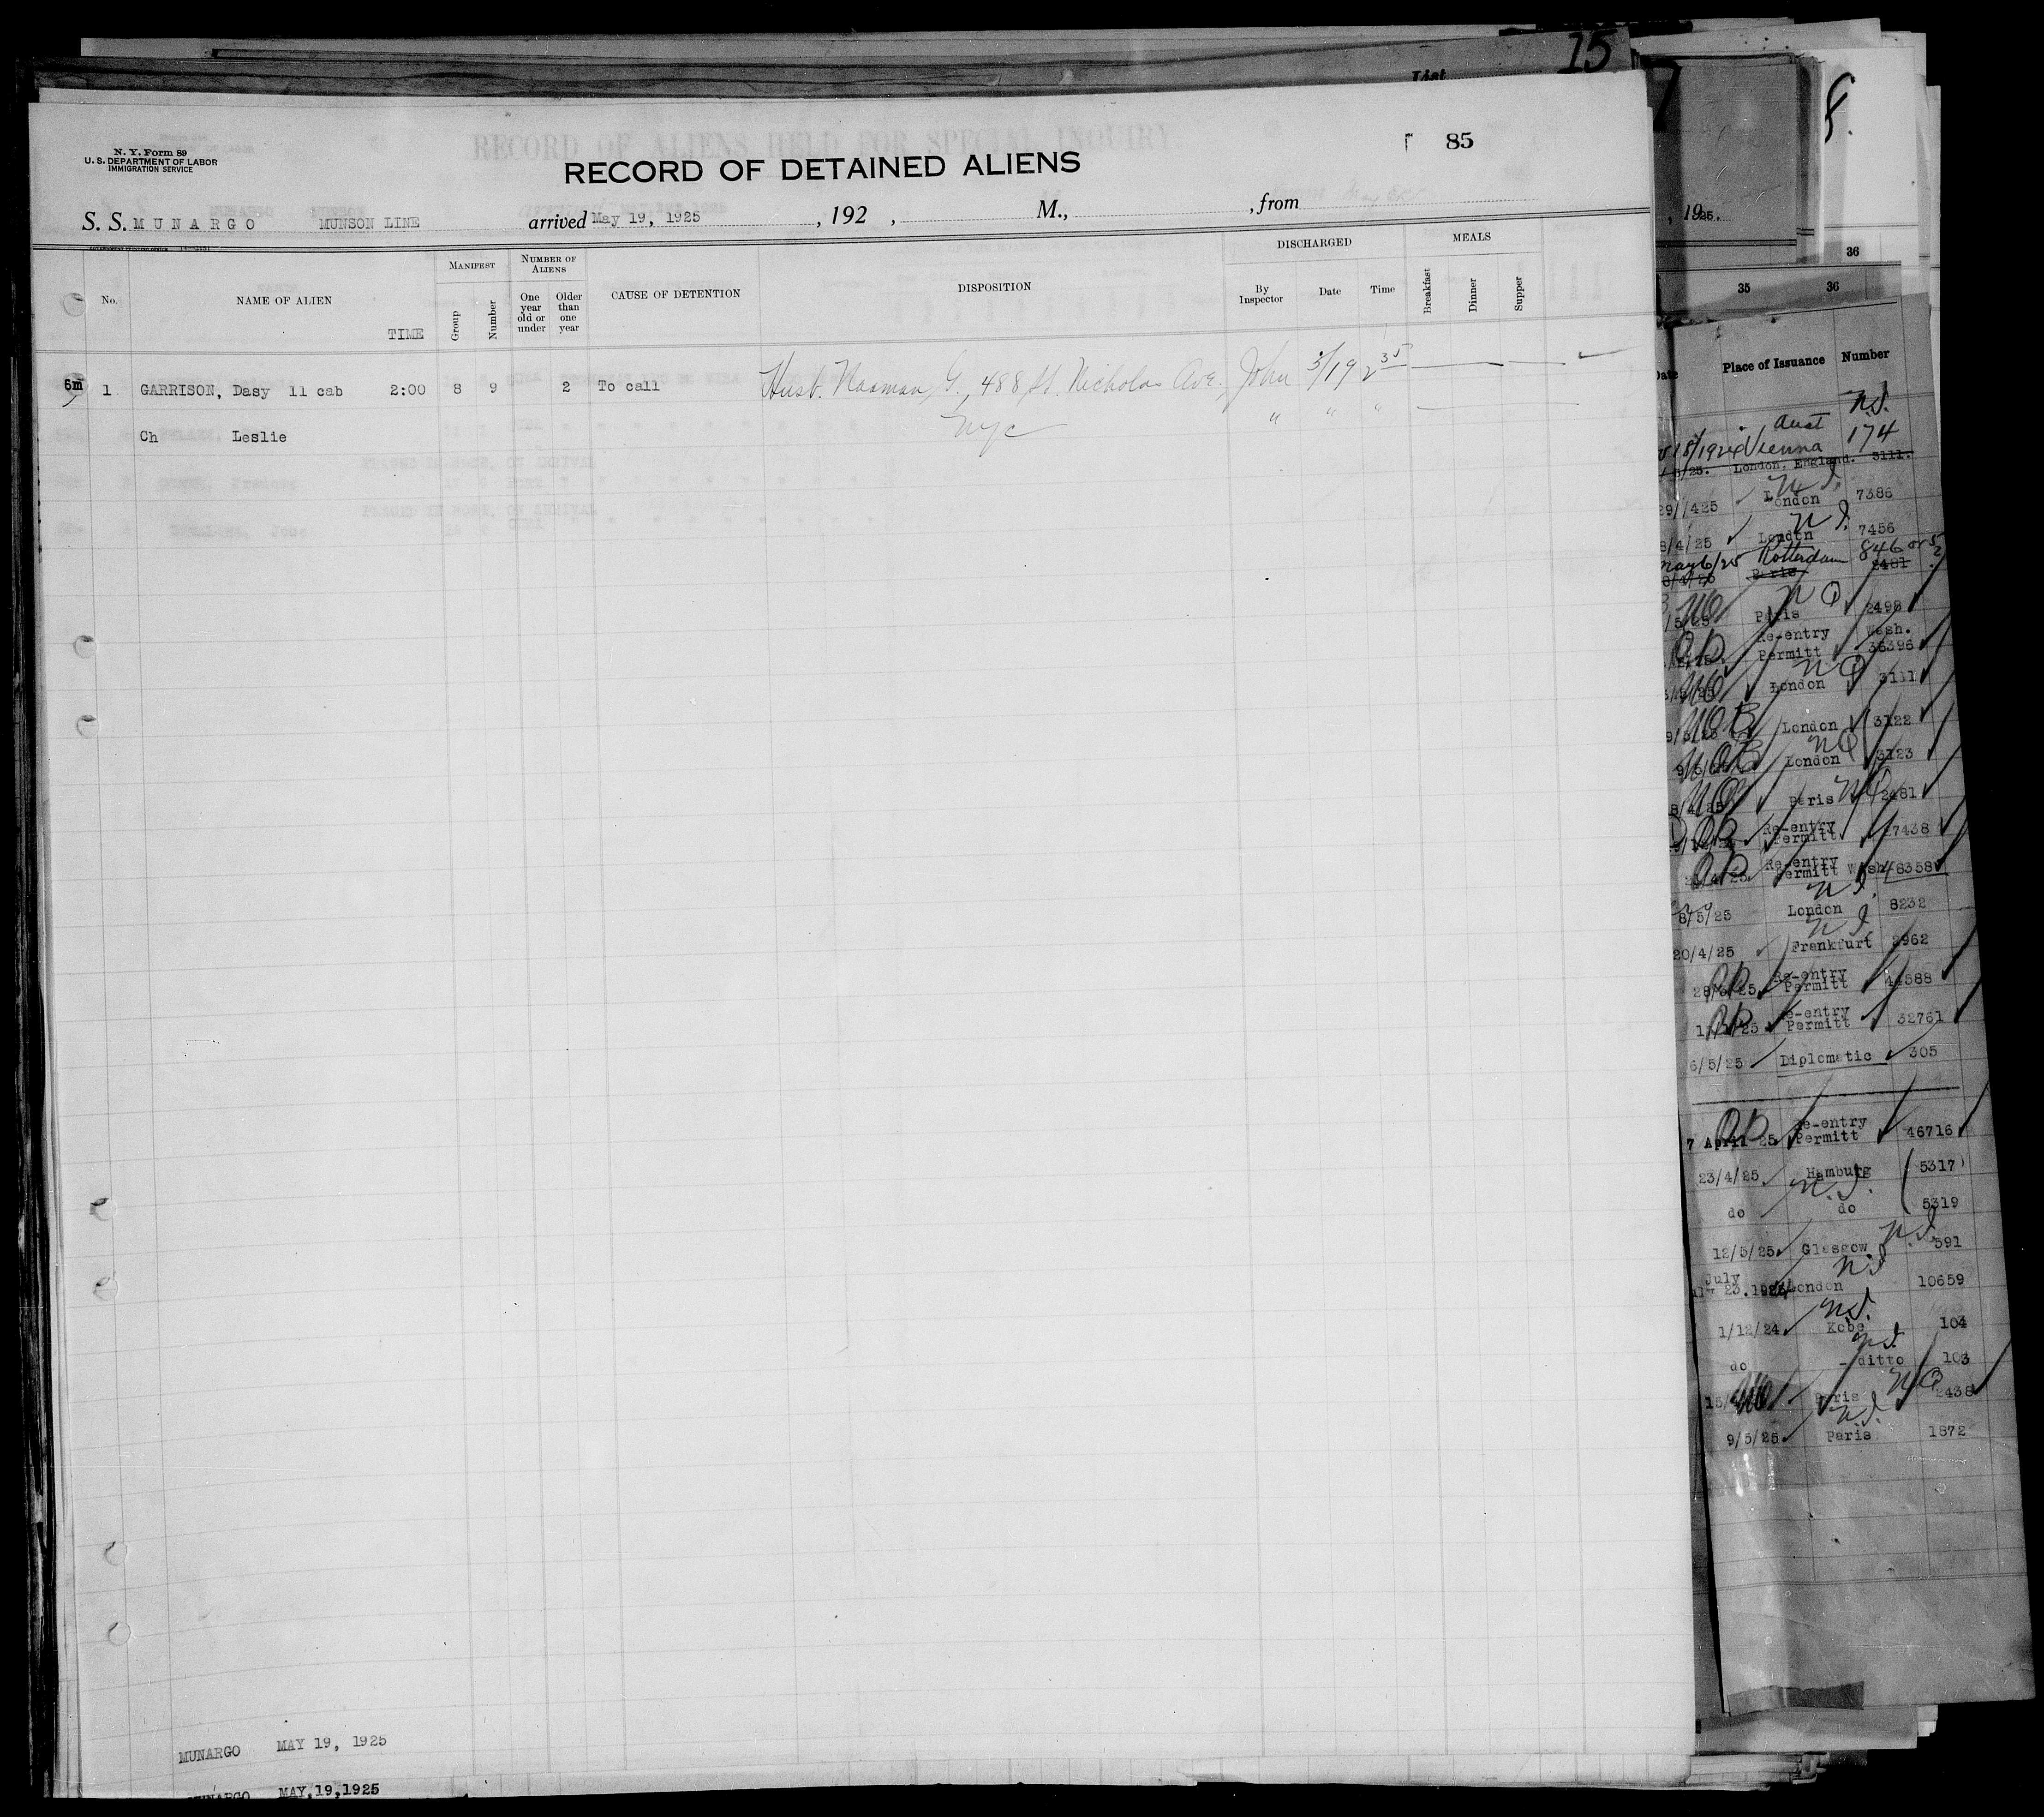 15
List
8.
N. Y. Form 89
U. S. DEPARTMENT OF LABOR
IMMIGRATION SERVICE
RECORD OF ALIENS HELD FOR SPECIAL INQUIRY
RECORD OF DETAINED ALIENS
85
S. S. MUNARGO MUNSON LINE arrived May 19, 1925 , 192 , M., , from
, 19 25.
No.
NAME OF ALIEN
TIME
MANIFEST
Group
Number
NUMBER OF ALIENS
One year old or under
Older than one year
CAUSE OF DETENTION
DISPOSITION
DISCHARGED
By Inspector
Date
Time
MEALS
Breakfast
Dinner
Supper
6m 1 GARRISON, Dasy 11 cab 2:00 8 9 2 To call Husb. Naaman G., 488 St. Nicholas Ave. John 5/19 2 35
Ch Leslie NYC " " "
MUNARGO MAY 19, 1925
MUNARGO MAY,19,1925
36
35 36
Date Place of Issuance Number
N.I.
Aust
1924 Vienna 174
London, England. 3111.
N I.
London 7386
N I.
8/4/25 London 7456
May 6/25 Rotterdam 846
Paris 2481
N Q
Paris 2498
Re-entry Wash.
Permitt 36396
N Q
London 3111
London 3122
N Q
London 3123
8/4/25 Paris NQ 2481
Re-entry
Permitt 27438
Re-entry
Permitt Wash 48358
N I.
8/5/25 London 8232
N I.
20/4/25 Frankfurt 2962
Re-entry
Permitt 44588
Re-entry
Permitt 32761
6/5/25 Diplomatic 305
Re-entry
7 April 25 Permitt 46716
23/4/25 Hamburg 5317
N.I.
do do 5319
12/5/25 Glasgow N.I. 591
N.I
July 23.192 London 10659
N.I.
1/12/24 Kobe 104
N.I.
do - ditto 103
Paris NQ 2438
N.I.
9/5/25 Paris 1872